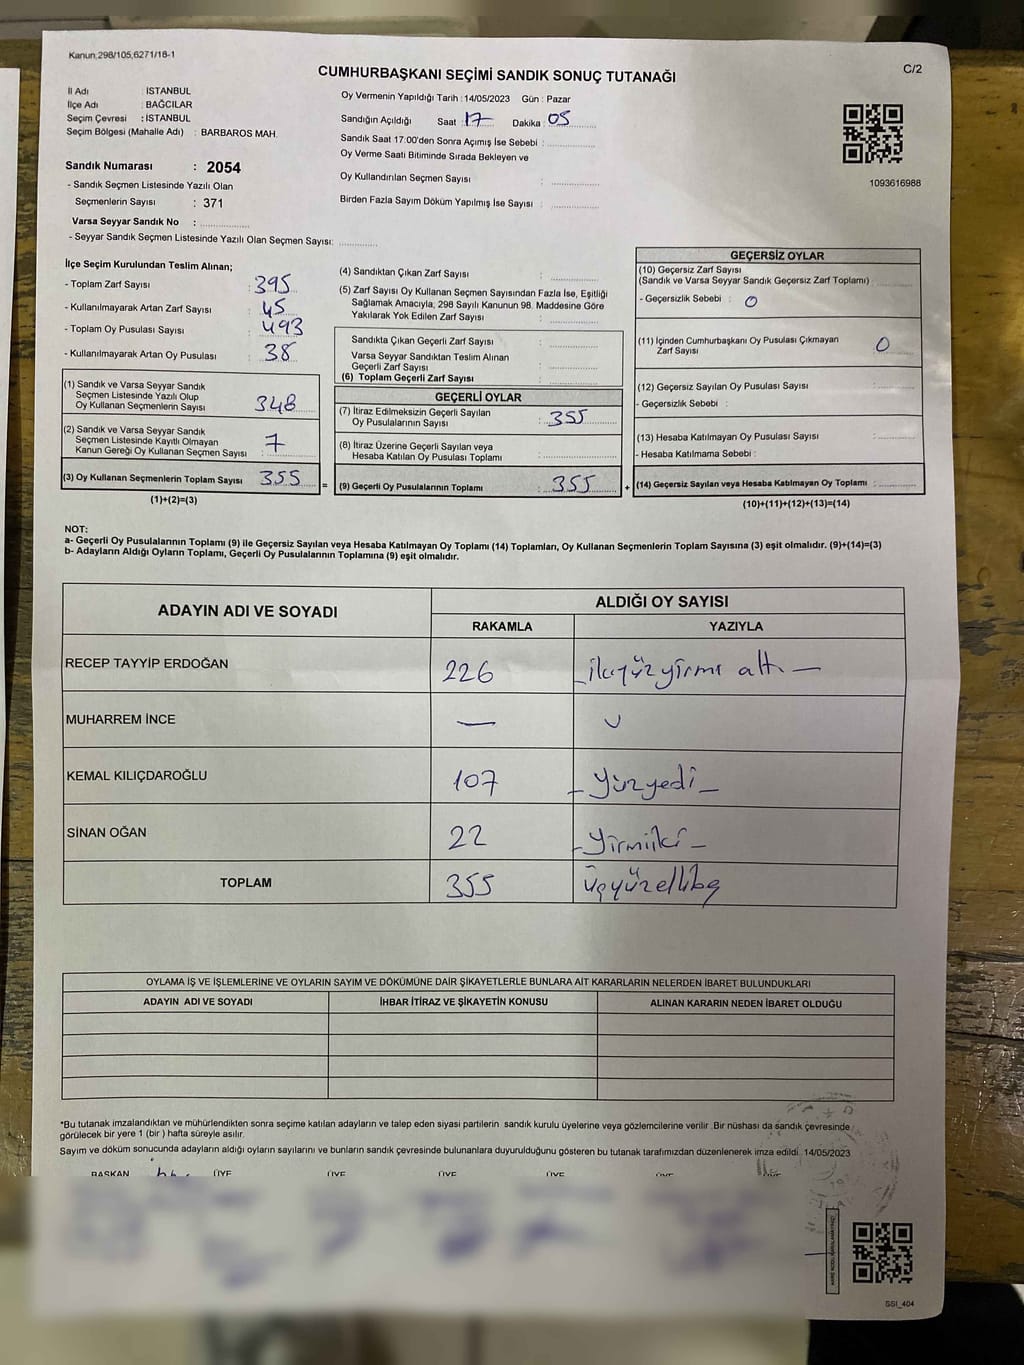 Kanun,298/105,6271/18-1
CUMHURBAŞKANI SEÇİMİ SANDIK SONUÇ TUTANAĞI
C/2
İl Adı : İSTANBUL
İlçe Adı : BAĞCILAR
Seçim Çevresi : İSTANBUL
Seçim Bölgesi (Mahalle Adı) : BARBAROS MAH.
Oy Vermenin Yapıldığı Tarih : 14/05/2023 Gün : Pazar
Sandığın Açıldığı Saat : 17 Dakika : 05
Sandık Saat 17:00'den Sonra Açımış İse Sebebi :
Oy Verme Saati Bitiminde Sırada Bekleyen ve
Oy Kullandırılan Seçmen Sayısı :
Birden Fazla Sayım Döküm Yapılmış İse Sayısı :
1093616988
Sandık Numarası : 2054
- Sandık Seçmen Listesinde Yazılı Olan
Seçmenlerin Sayısı : 371
Varsa Seyyar Sandık No :
- Seyyar Sandık Seçmen Listesinde Yazılı Olan Seçmen Sayısı:
İlçe Seçim Kurulundan Teslim Alınan;
- Toplam Zarf Sayısı : 395
- Kullanılmayarak Artan Zarf Sayısı : 45
- Toplam Oy Pusulası Sayısı : 493
- Kullanılmayarak Artan Oy Pusulası : 38
(1) Sandık ve Varsa Seyyar Sandık
Seçmen Listesinde Yazılı Olup
Oy Kullanan Seçmenlerin Sayısı : 348
(2) Sandık ve Varsa Seyyar Sandık
Seçmen Listesinde Kayıtlı Olmayan
Kanun Gereği Oy Kullanan Seçmen Sayısı : 7
(3) Oy Kullanan Seçmenlerin Toplam Sayısı : 355
(1)+(2)=(3)
(4) Sandıktan Çıkan Zarf Sayısı :
(5) Zarf Sayısı Oy Kullanan Seçmen Sayısından Fazla İse, Eşitliği
Sağlamak Amacıyla; 298 Sayılı Kanunun 98. Maddesine Göre
Yakılarak Yok Edilen Zarf Sayısı :
Sandıkta Çıkan Geçerli Zarf Sayısı :
Varsa Seyyar Sandıktan Teslim Alınan
Geçerli Zarf Sayısı :
(6) Toplam Geçerli Zarf Sayısı :
GEÇERLİ OYLAR
(7) İtiraz Edilmeksizin Geçerli Sayılan
Oy Pusulalarının Sayısı : 355
(8) İtiraz Üzerine Geçerli Sayılan veya
Hesaba Katılan Oy Pusulası Toplamı :
= (9) Geçerli Oy Pusulalarının Toplamı : 355 +
GEÇERSİZ OYLAR
(10) Geçersiz Zarf Sayısı
(Sandık ve Varsa Seyyar Sandık Geçersiz Zarf Toplamı) :
- Geçersizlik Sebebi : 0
(11) İçinden Cumhurbaşkanı Oy Pusulası Çıkmayan
Zarf Sayısı : 0
(12) Geçersiz Sayılan Oy Pusulası Sayısı :
- Geçersizlik Sebebi :
(13) Hesaba Katılmayan Oy Pusulası Sayısı :
- Hesaba Katılmama Sebebi :
(14) Geçersiz Sayılan veya Hesaba Katılmayan Oy Toplamı :
(10)+(11)+(12)+(13)=(14)
NOT:
a- Geçerli Oy Pusulalarının Toplamı (9) ile Geçersiz Sayılan veya Hesaba Katılmayan Oy Toplamı (14) Toplamları, Oy Kullanan Seçmenlerin Toplam Sayısına (3) eşit olmalıdır. (9)+(14)=(3)
b- Adayların Aldığı Oyların Toplamı, Geçerli Oy Pusulalarının Toplamına (9) eşit olmalıdır.
ADAYIN ADI VE SOYADI
ALDIĞI OY SAYISI
RAKAMLA YAZIYLA
RECEP TAYYİP ERDOĞAN 226 ikiyüzyirmi altı
MUHARREM İNCE —
KEMAL KILIÇDAROĞLU 107 yüzyedi
SİNAN OĞAN 22 yirmiiki
TOPLAM 355 üçyüzellibeş
OYLAMA İŞ VE İŞLEMLERİNE VE OYLARIN SAYIM VE DÖKÜMÜNE DAİR ŞİKAYETLERLE BUNLARA AİT KARARLARIN NELERDEN İBARET BULUNDUKLARI
ADAYIN ADI VE SOYADI İHBAR İTİRAZ VE ŞİKAYETİN KONUSU ALINAN KARARIN NEDEN İBARET OLDUĞU
*Bu tutanak imzalandıktan ve mühürlendikten sonra seçime katılan adayların ve talep eden siyasi partilerin sandık kurulu üyelerine veya gözlemcilerine verilir. Bir nüshası da sandık çevresinde
görülecek bir yere 1 (bir) hafta süreyle asılır.
Sayım ve döküm sonucunda adayların aldığı oyların sayılarını ve bunların sandık çevresinde bulunanlara duyurulduğunu gösteren bu tutanak tarafımızdan düzenlenerek imza edildi. 14/05/2023
BAŞKAN ÜYE ÜYE ÜYE ÜYE ÜYE ÜYE
SSI_404